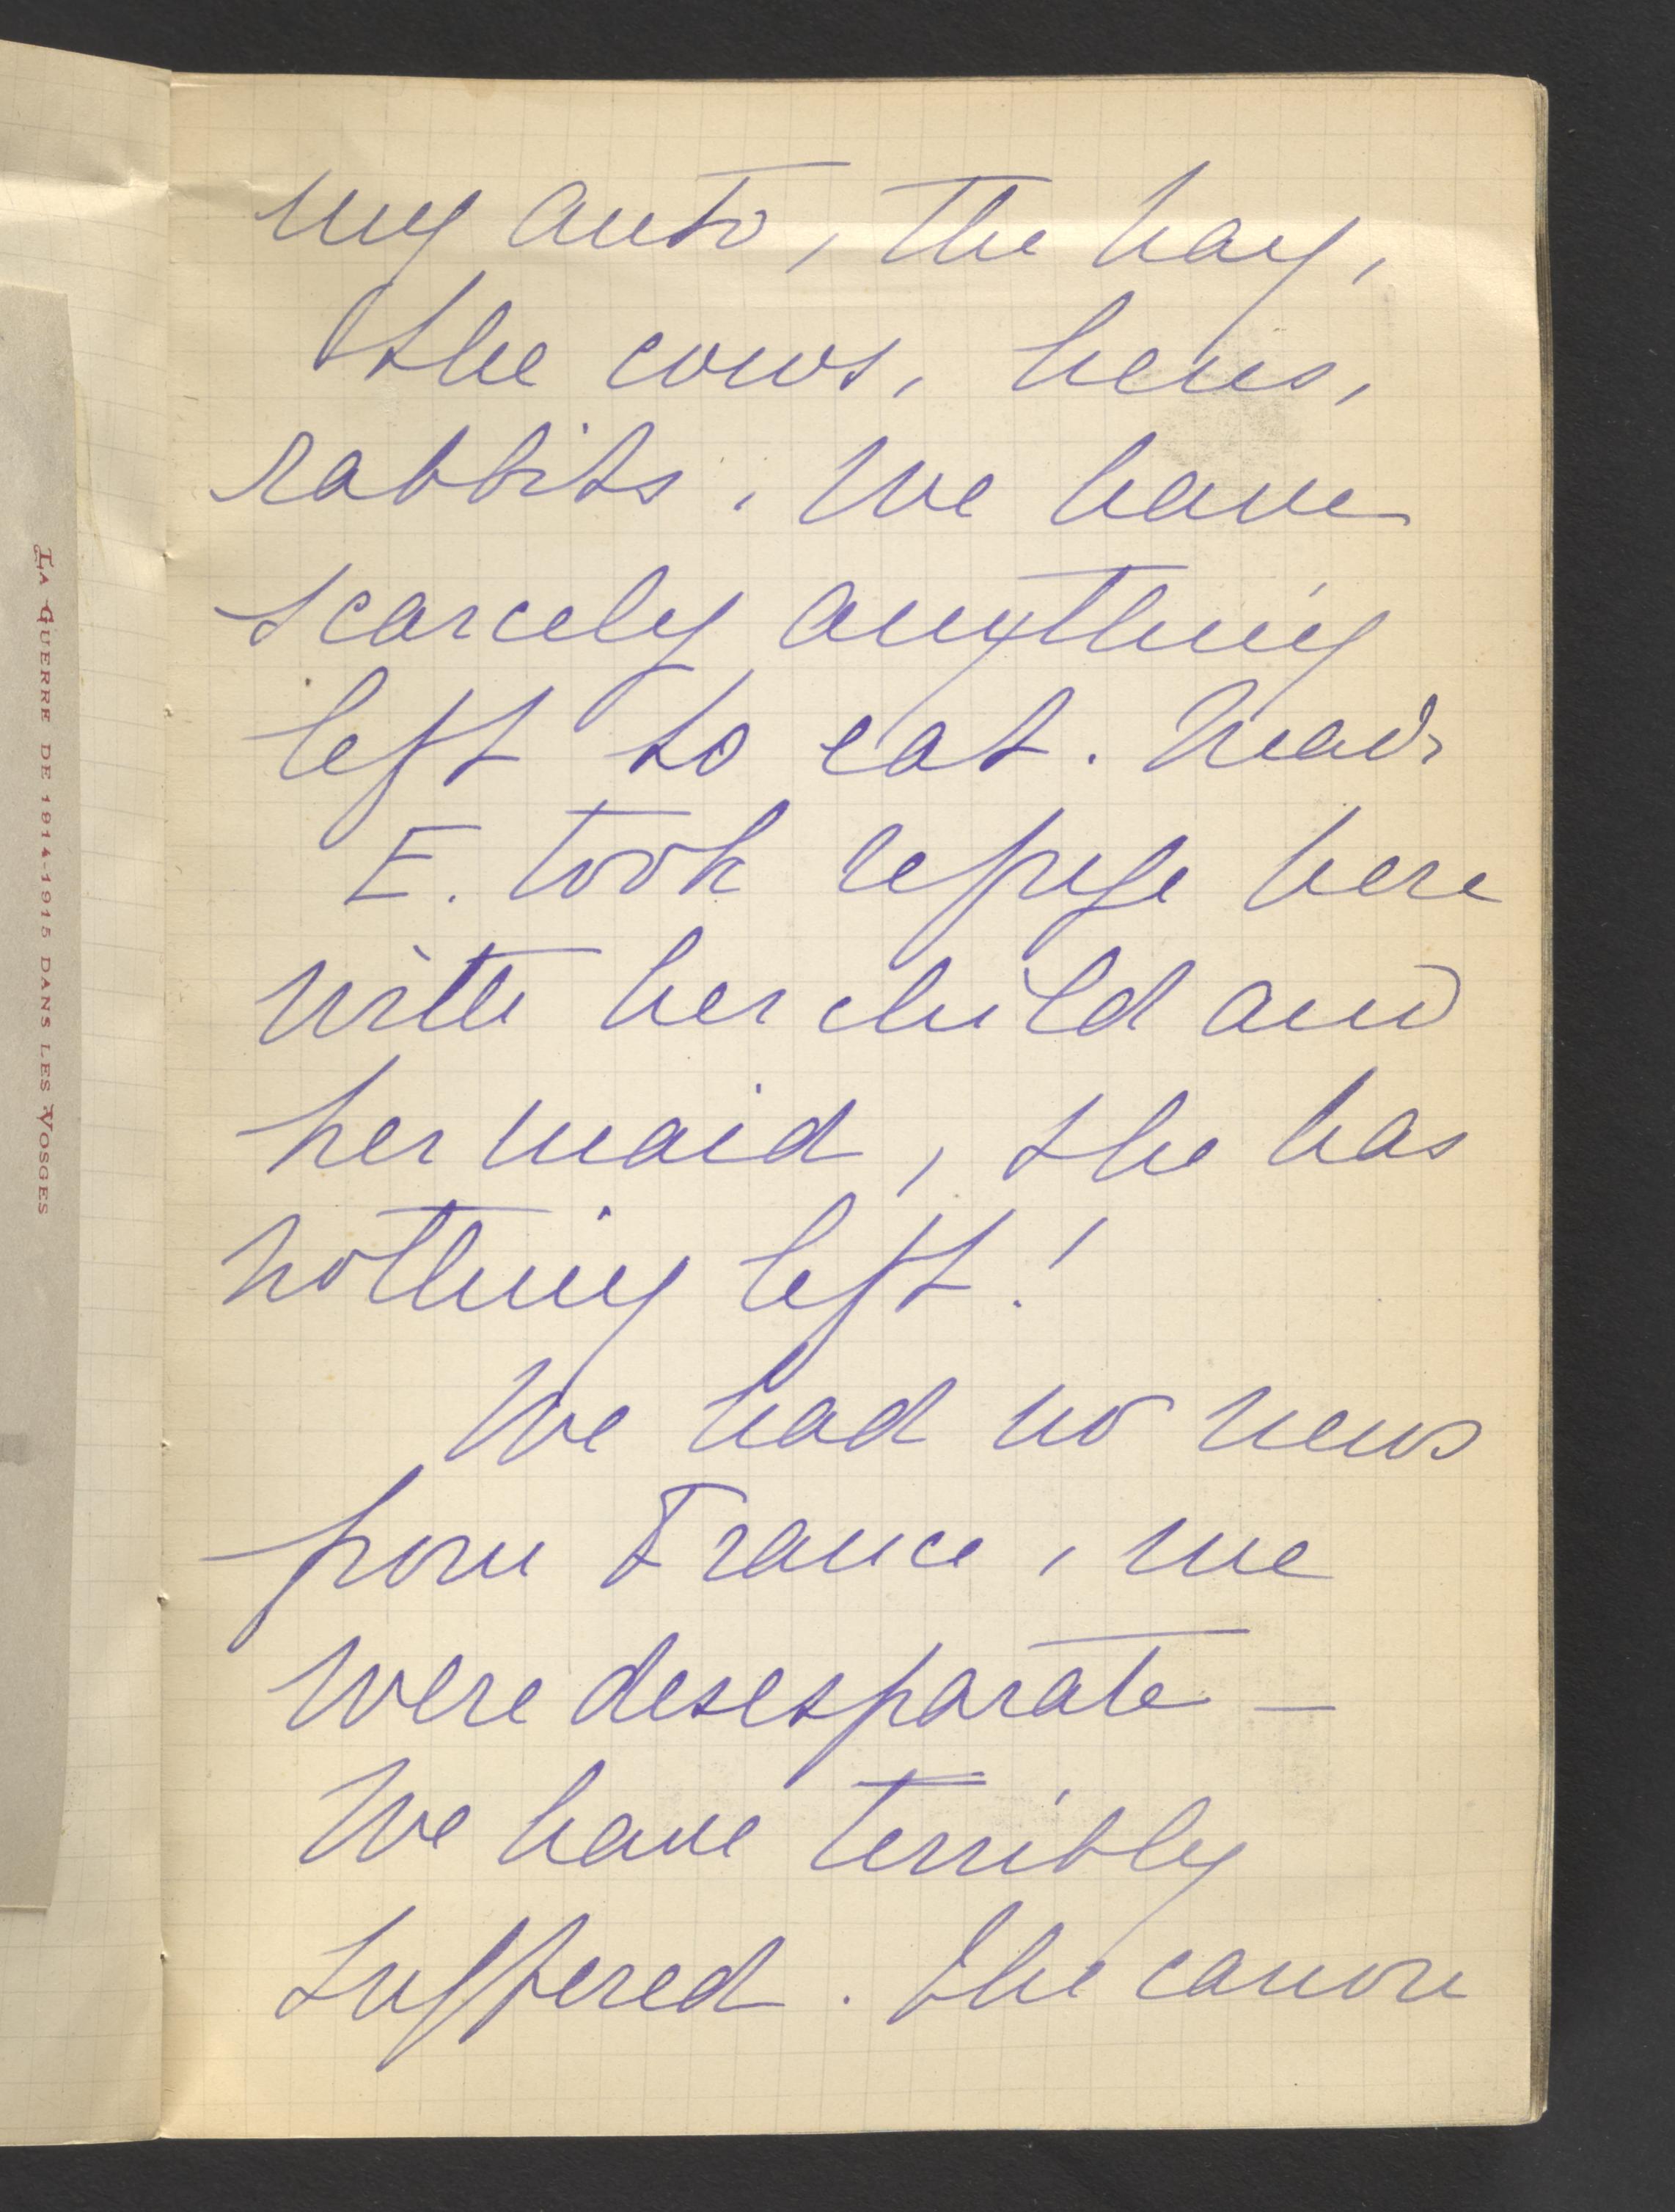 LA GUERRE DE 1914-1915 DANS LES VOSGES
my auto, the hay,
the cows, hens,
rabbits. We have
scarcely anything
left to eat. Mad.
E. took refuge here
with her child and
her maid, she has
nothing left!
We had no news
from France, we
were desesparate —
We have terribly
suffered. The canon